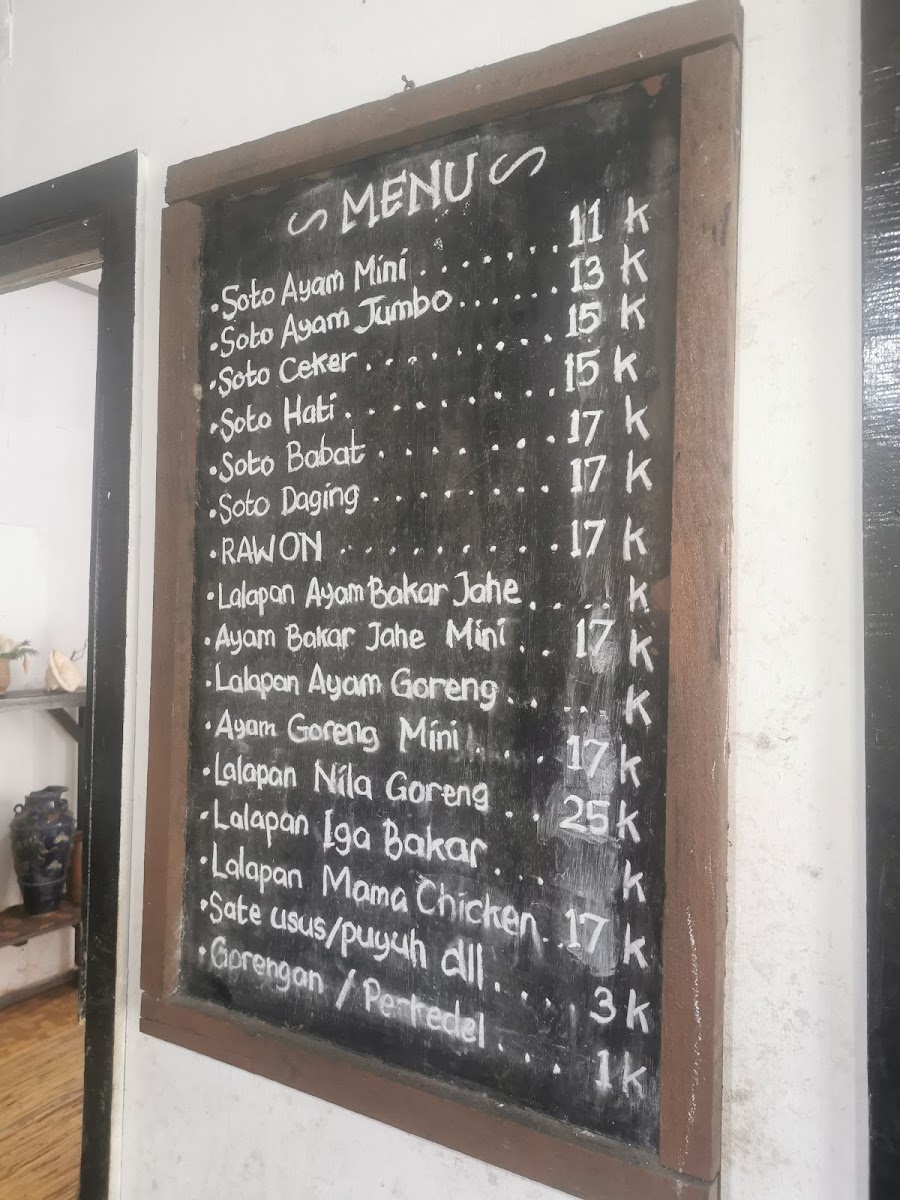 MENU
•Soto Ayam Mini ....... 11 K
•Soto Ayam Jumbo ...... 13 K
•Soto Ceker ......... 15 K
•Soto Hati ......... 15 K
•Soto Babat ........ 17 K
•Soto Daging ........ 17 K
•RAWON .......... 17 K
•Lalapan Ayam Bakar Jahe .... K
•Ayam Bakar Jahe Mini .. 17 K
•Lalapan Ayam Goreng .... K
•Ayam Goreng Mini .... 17 K
•Lalapan Nila Goreng .. 25 K
•Lalapan Iga Bakar ... K
•Lalapan Mama Chicken .. 17 K
•Sate usus/puyuh dll .... 3 K
•Gorengan / Perkedel .... 1 K